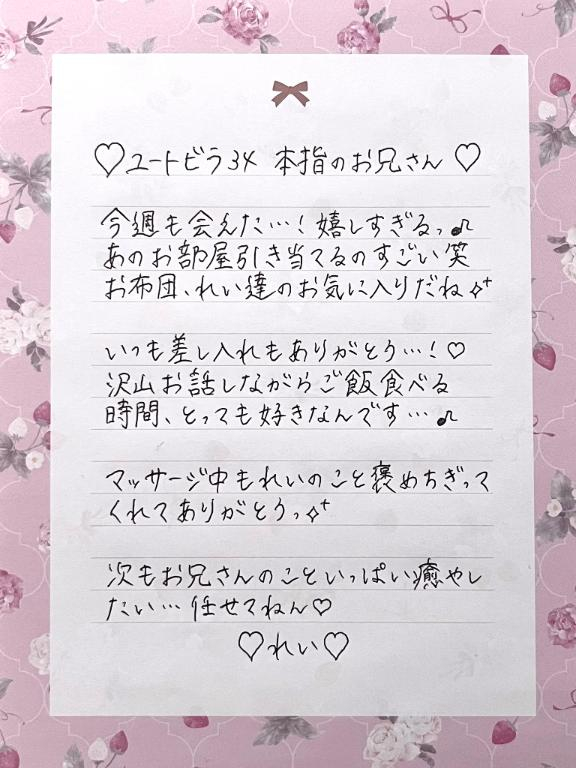 ♡ユートピラ34 本指のお兄さん♡
今週も会えた…！嬉しすぎるっ♪
あのお部屋引き当てるのすごい笑
お布団、れい達のお気に入りだね✧⁺
いつも差し入れもありがとう…！♡
沢山お話しながらご飯食べる
時間、とっても好きなんです…♪
マッサージ中もれいのこと褒めちぎって
くれてありがとうっ✧⁺
次もお兄さんのこといっぱい癒やし
たい…任せてねん♡
♡れい♡